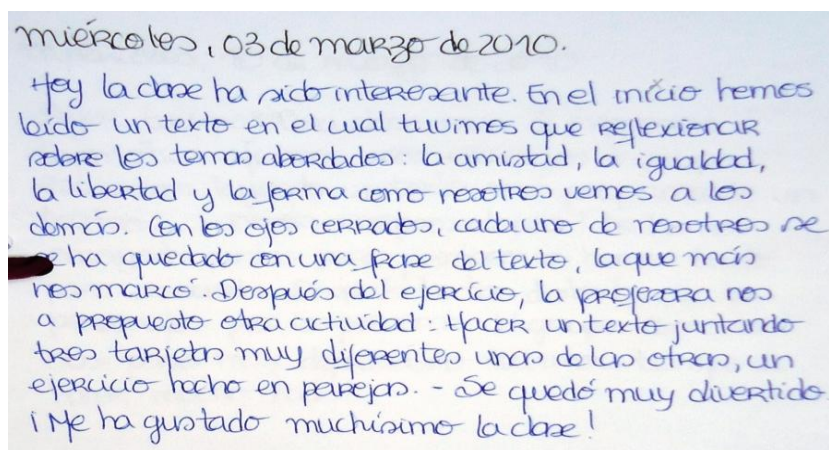 miércoles, 03 de marzo de 2010.
Hoy la clase ha sido interesante. En el início hemos
leído un texto en el cual tuvimos que reflexionar
sobre los temas abordados: la amistad, la igualdad,
la libertad y la forma como nosotros vemos a los
demás. Con los ojos cerrados, cada uno de nosotros se
se ha quedado con una frase del texto, la que más
nos marcó. Después del ejercício, la profesora nos
a propuesto otra actividad: Hacer un texto juntando
tres tarjetas muy diferentes unas de las otras, un
ejercicio hecho en parejas. - Se quedó muy divertido.
¡Me ha gustado muchísimo la clase!